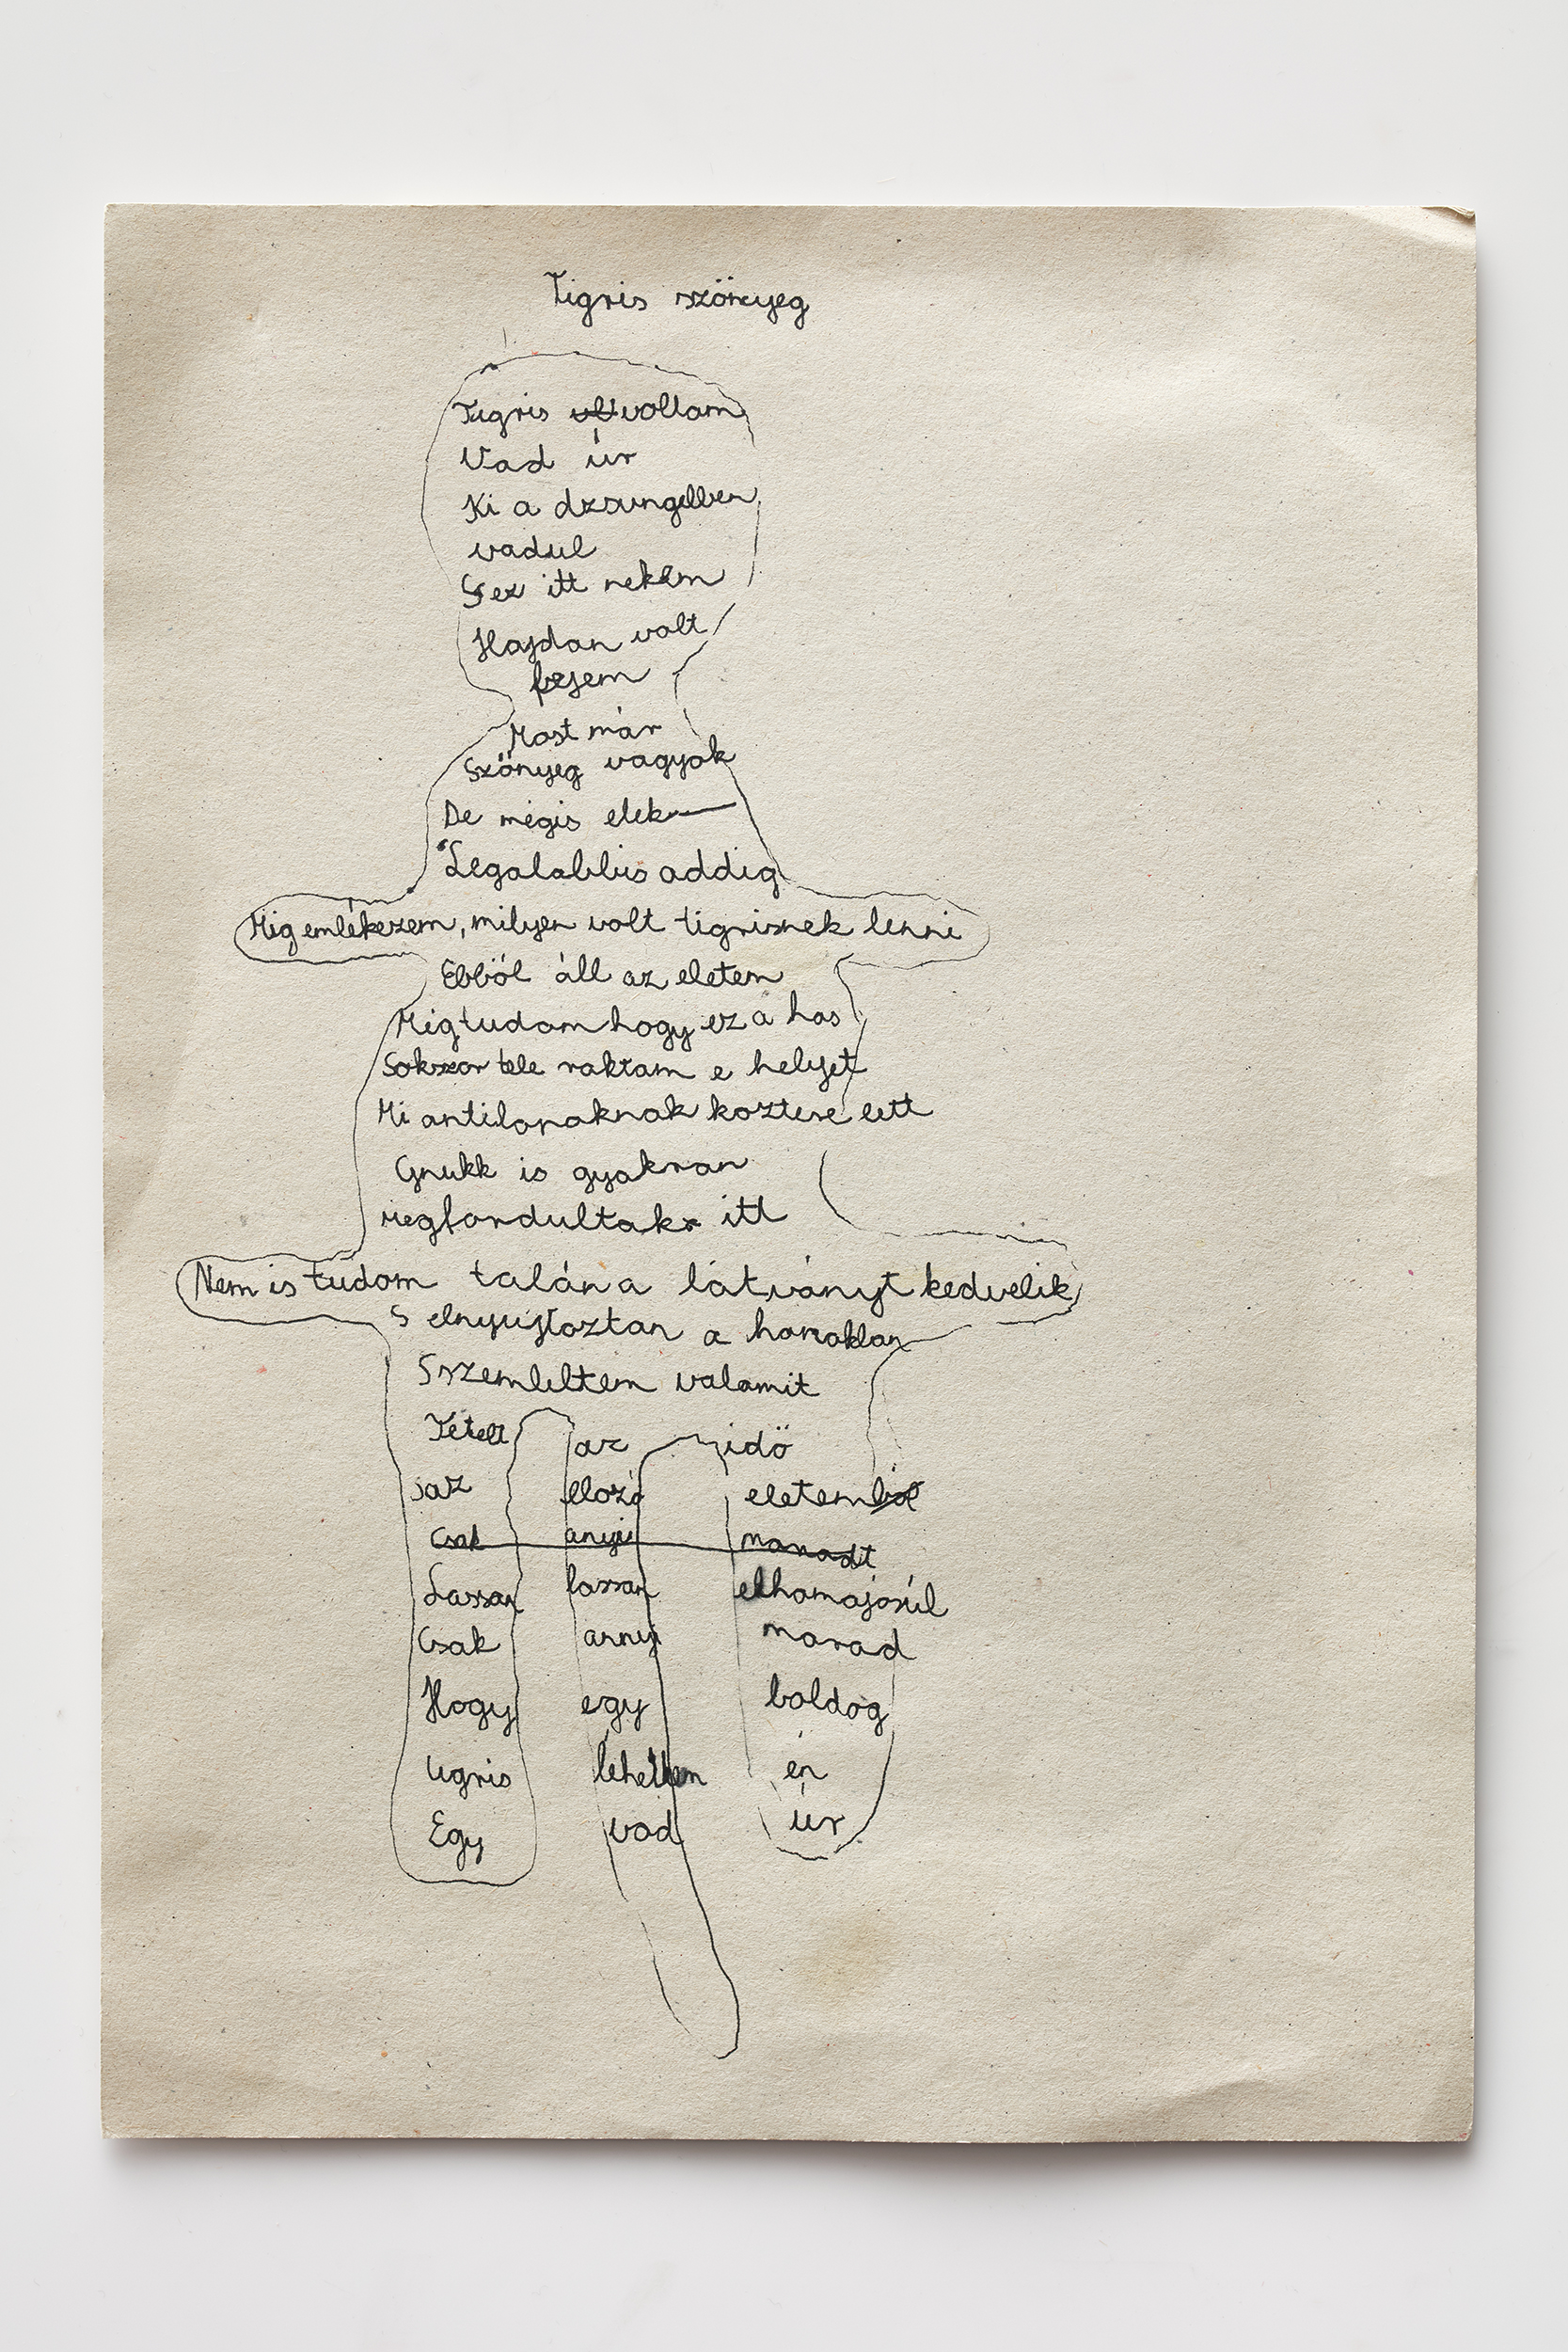 Tigris szönyeg
Tigris volt voltam
Vad úr
Ki a dzsungelben
vadul
S ez itt nekem
Hajdan volt
fejem
Most már
Szönyeg vagyok
De mégis elek
Legalabbis addig
Mig emlékezem, milyen volt tigrisnek lenni
Ebböl áll az eletem
Mig tudom hogy ez a has
Sokszor tele raktam e helyet
Mi antilopaknak koztere lett
Gnukk is gyakran
megfordultak itt
Nem is tudom talán a látványt kedvelik
S elnyujtoztan a
S szemleltem valamit
Tétell az idö
s az elozö eletemböl
Csak anyi maradt
Lassan lassan elhomajosúl
Csak annyi marad
Hogy egy boldog
tigris lehettem én
Egy vad úr